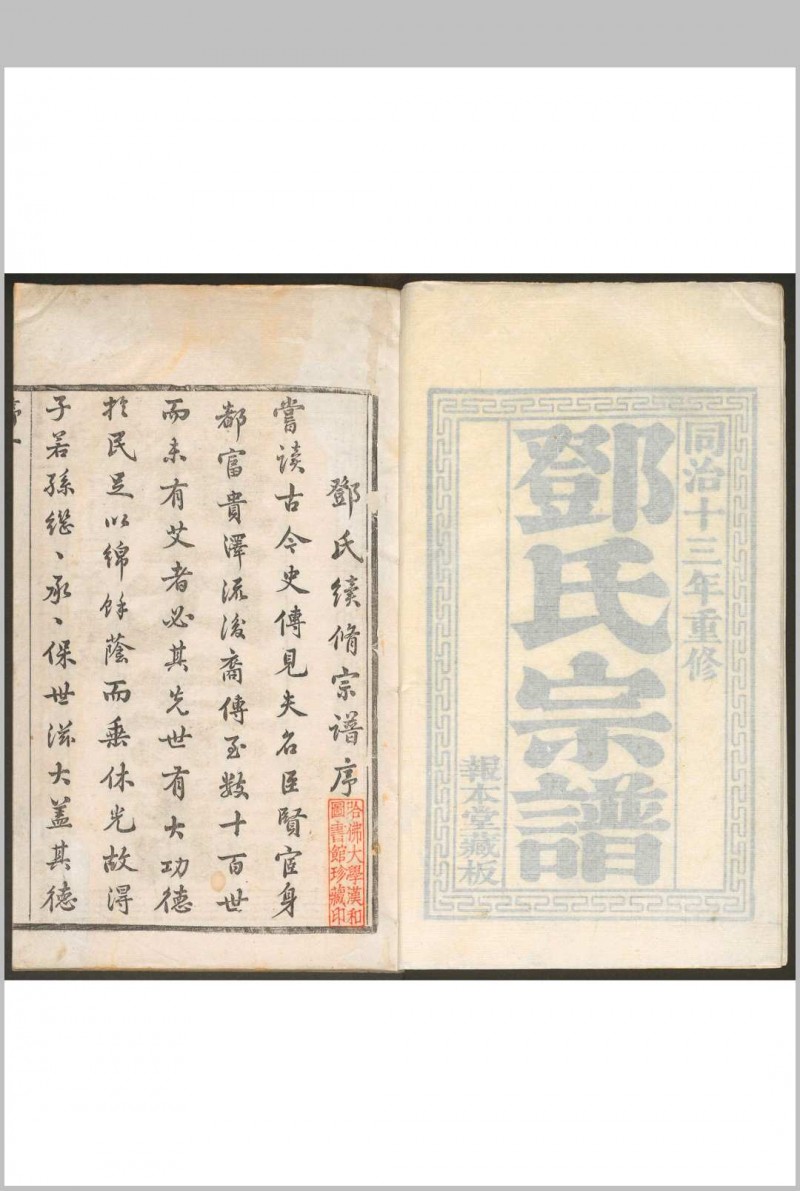 同治十三年重修
鄧氏宗譜
報本堂藏板
鄧氏續脩宗譜序
嘗读古今史傳見夫名臣賢宦身
都富貴澤流後裔傳至數十百世
而未有艾者必其先世有大功德
於民足以綿餘蔭而垂休光故得
子若孫繼〻承〻保世滋大蓋其德
序一
哈佛大學漢和
圖書館珍藏印